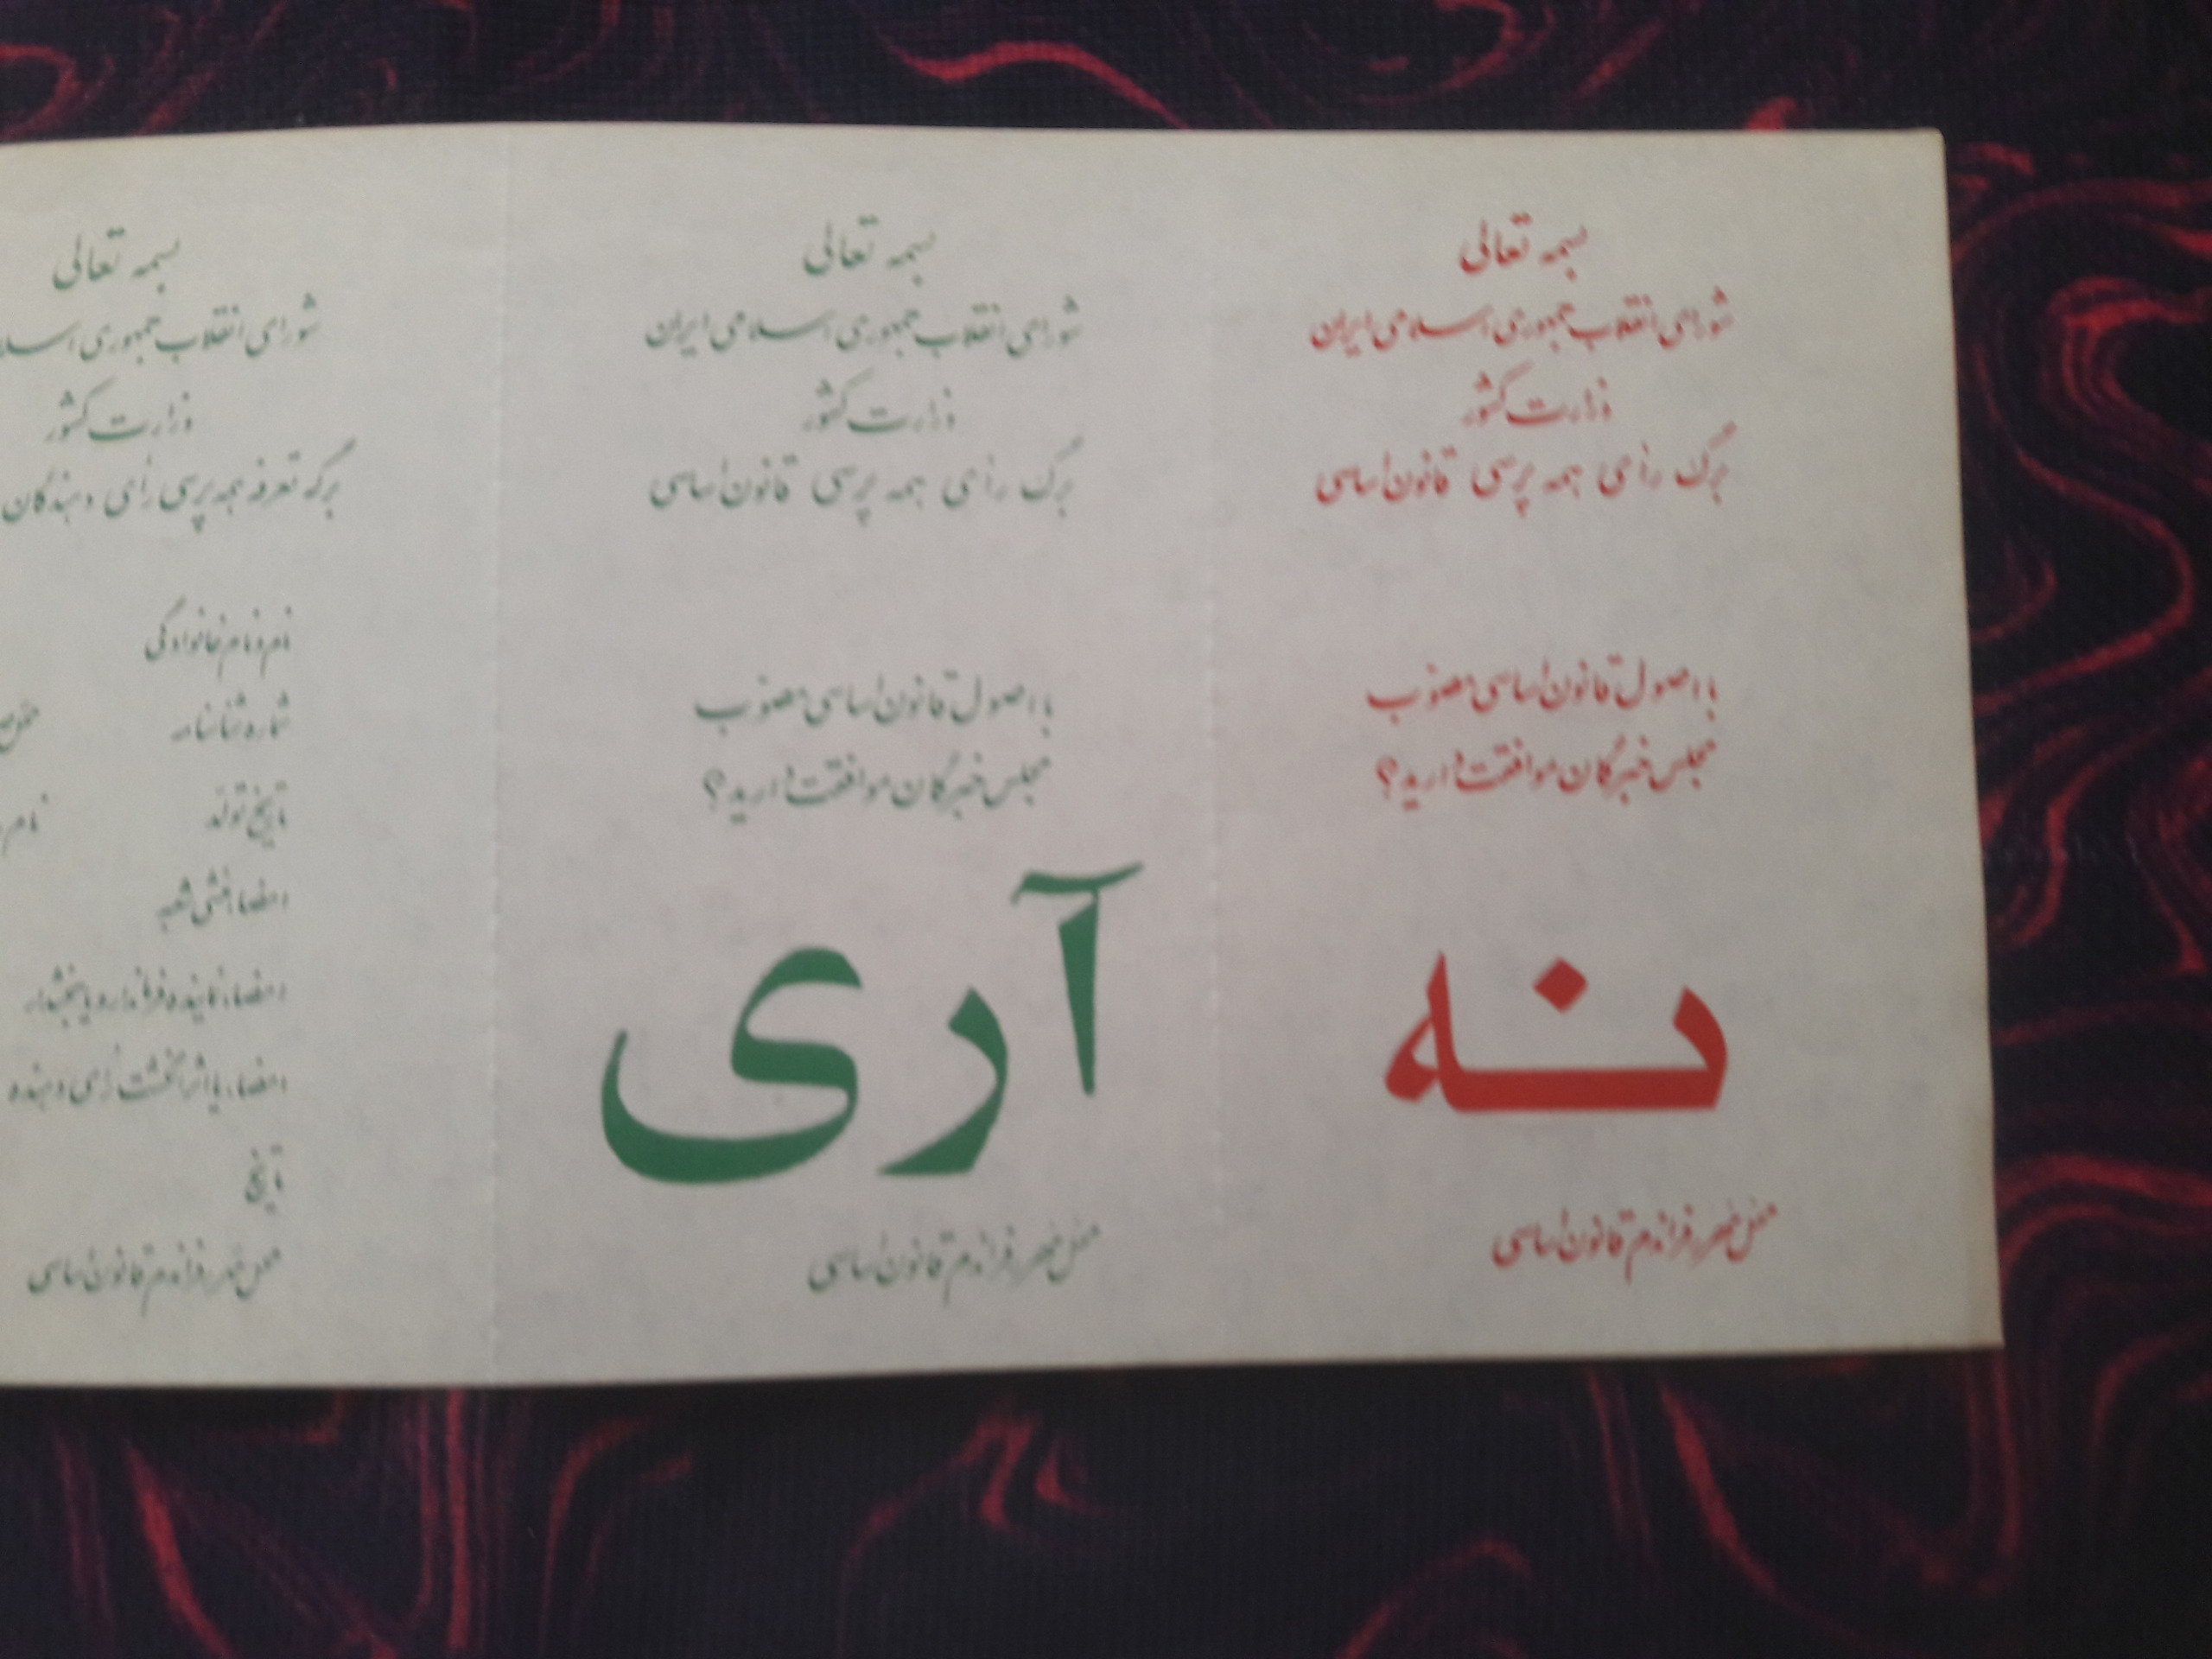 بسمه تعالی
شورای انقلاب جمهوری اسلامی ایران
وزارت کشور
برگ رأی همه پرسی قانون اساسی
با اصول قانون اساسی مصوب
مجلس خبرگان موافقت دارید؟
نه
محل مهر رفراندم قانون اساسی
بسمه تعالی
شورای انقلاب جمهوری اسلامی ایران
وزارت کشور
برگ رأی همه پرسی قانون اساسی
با اصول قانون اساسی مصوب
مجلس خبرگان موافقت دارید؟
آری
محل مهر رفراندم قانون اساسی
بسمه تعالی
شورای انقلاب جمهوری
وزارت کشور
برگه تعرفه همه پرسی رأی دهندگان
نام و نام خانوادگی
شماره شناسنامه
تاریخ تولد نام
امضاء منشی شعبه
امضاء نماینده فرماندار و یا بخشدار
امضاء یا اثر انگشت رأی دهنده
تاریخ
محل مهر رفراندم قانون اساسی